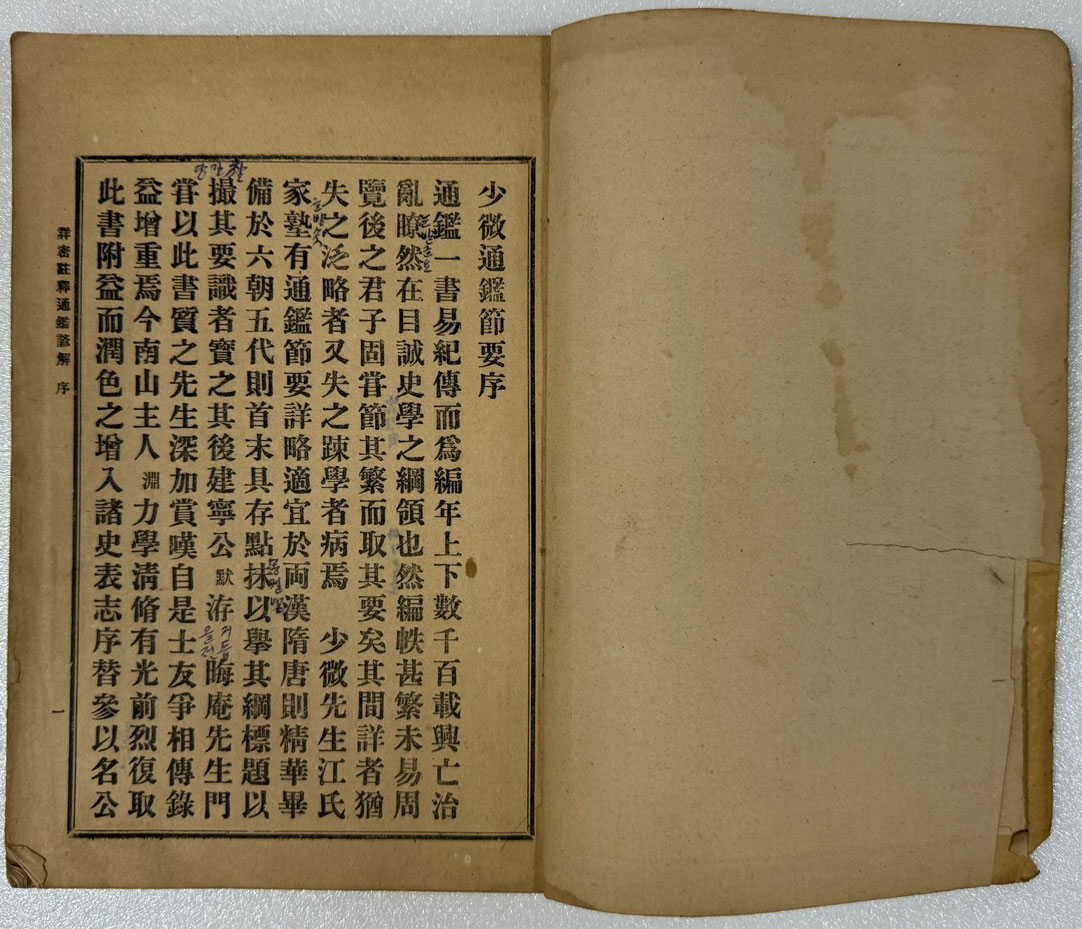 少微通鑑節要序
通鑑一書易紀傳而爲編年上下數千百載興亡治
亂瞭然在目誠史學之綱領也然編帙甚繁未易周
覽後之君子固甞節其繁而取其要矣其間詳者猶
失之泛略者又失之踈學者病焉 少微先生江氏
家塾有通鑑節要詳略適宜於両漢隋唐則精華畢
備於六朝五代則首末具存點抹以擧其綱標題以
撮其要識者寶之其後建寧公默洊晦庵先生門
甞以此書質之先生深加賞嘆自是士友爭相傳錄
益增重焉今南山主人淵力學淸脩有光前烈復取
此書附益而潤色之增入諸史表志序替參以名公
詳密註釋通鑑諺解 序
一
거듭